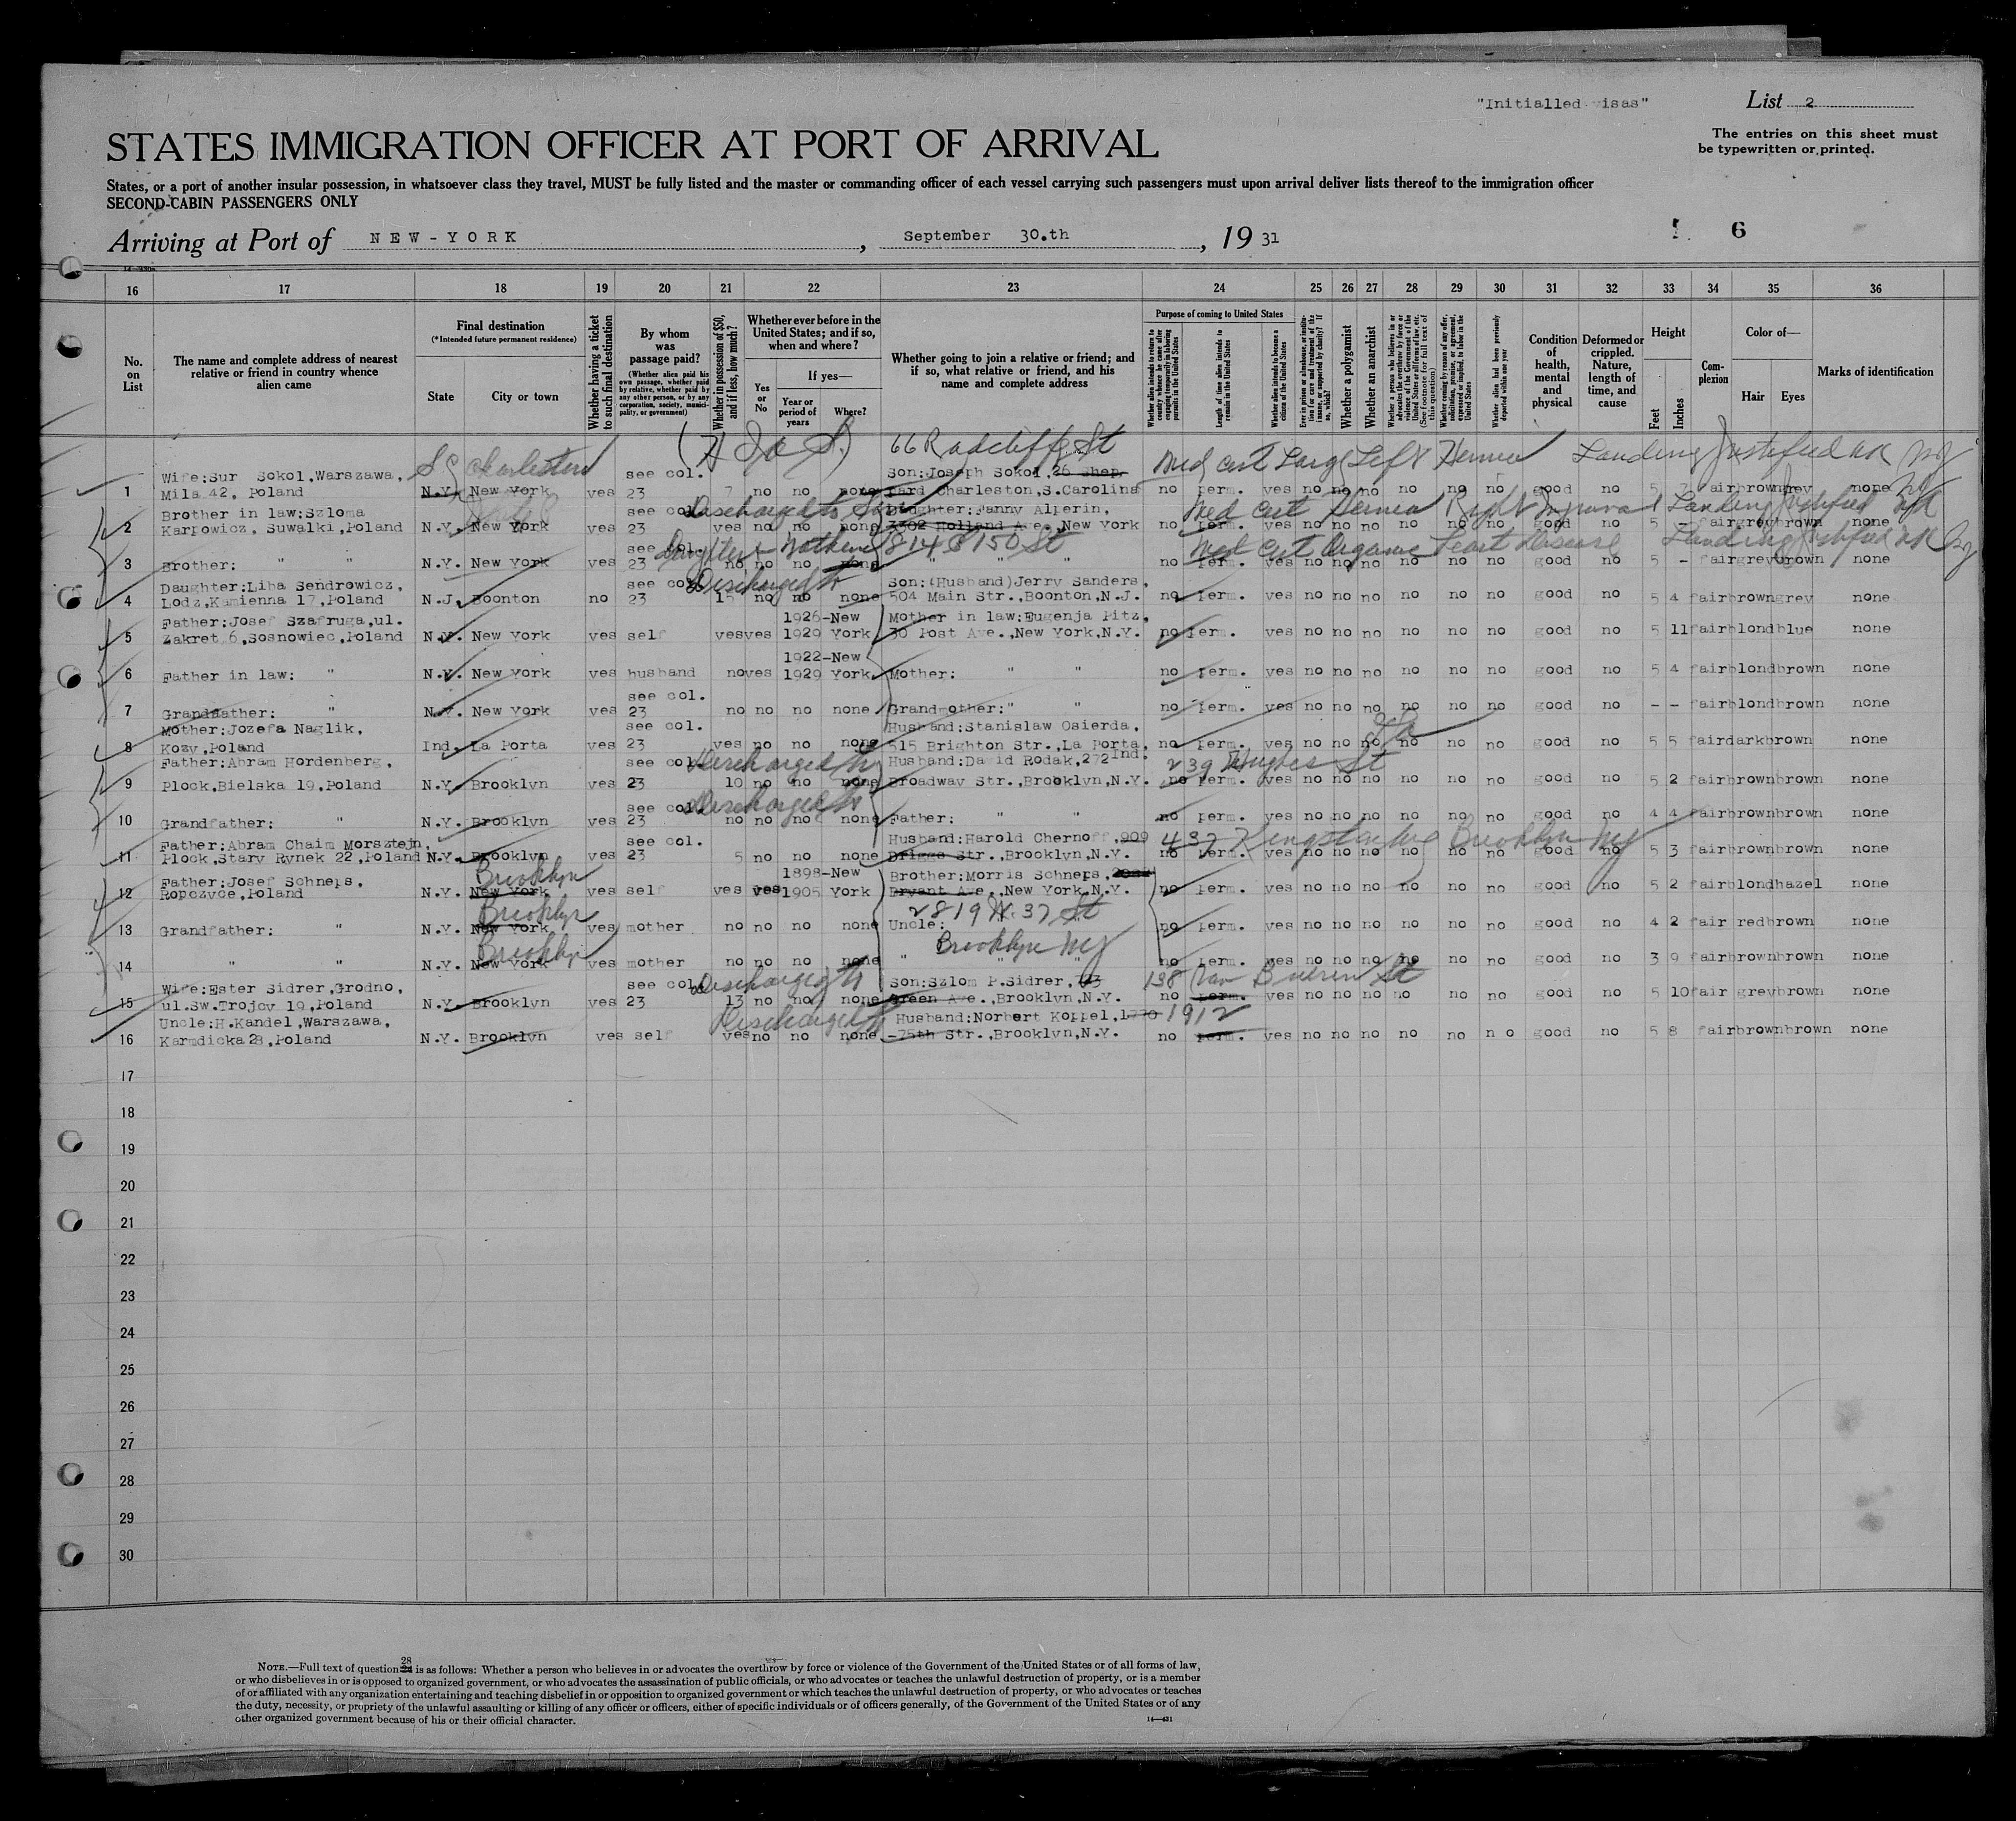 "Initialled visas"
List 2
STATES IMMIGRATION OFFICER AT PORT OF ARRIVAL
The entries on this sheet must
be typewritten or printed.
States, or a port of another insular possession, in whatsoever class they travel, MUST be fully listed and the master or commanding officer of each vessel carrying such passengers must upon arrival deliver lists thereof to the immigration officer
SECOND-CABIN PASSENGERS ONLY
Arriving at Port of NEW-YORK, September 30.th, 19 31
6
16 17 18 19 20 21 22 23 24 25 26 27 28 29 30 31 32 33 34 35 36
No. on List
The name and complete address of nearest relative or friend in country whence alien came
Final destination
(*Intended future permanent residence)
State
City or town
Whether having a ticket to such final destination
By whom was passage paid?
(Whether alien paid his own passage, whether paid by relative, whether paid by any other person, or by any corporation, society, municipality, or government)
Whether in possession of $50, and if less, how much?
Whether ever before in the United States; and if so, when and where?
Yes or No
If yes—
Year or period of years
Where?
Whether going to join a relative or friend; and if so, what relative or friend, and his name and complete address
Purpose of coming to United States
Whether alien intends to return to country whence he came after engaging temporarily in laboring pursuits in the United States
Length of time alien intends to remain in the United States
Whether alien intends to become a citizen of the United States
Whether a polygamist
Whether an anarchist
Whether alien had been previously deported within one year
Condition of health, mental and physical
Deformed or crippled. Nature, length of time, and cause
Height
Feet
Inches
Complexion
Color of—
Hair
Eyes
Marks of identification
66 Radcliffe St
S.C. Charleston
Med cert Large Left Hernia Landing Justified
Wife:Sur Sokol,Warszawa, see col. Son:Joseph Sokol,26 Shep
1 Mila 42, Poland N.Y. New York yes 23 7 no no none Pard Charleston,S.Carolina no perm. yes no no no no no no good no 5 7 fair brown grey none
Discharged to
Med cert Hernia Right Inguinal Landing Justified
Brother in law:Szloma see col. Daughter:Fanny Alperin,
2 Karpowicz, Suwalki,Poland N.Y. New York yes 23 yes no no none 3302 Holland Ave.,New York no perm. yes no no no no no no good no 5 fair grey brown none
814 E 150 St
Med Cert Organic Heart Disease Landing Justified
see col.
3 Brother: " " N.Y. New York yes 23 no no no none " " " no perm. yes no no no no no no good no 5 - fair grey brown none
Discharged to
Daughter:Liba Sendrowicz, see col. Son:(Husband)Jerry Sanders,
4 Lodz,Kamienna 17,Poland N.J. Boonton no 23 15 no no none 504 Main Str.,Boonton,N.J. no perm. yes no no no no no no good no 5 4 fair brown grey none
Father:Josef Szafruga,ul. 1926-New Mother in law:Eugenja Pitz,
5 Zakret 6,Sosnowiec,Poland N.Y. New York yes self yes yes 1929 York 30 Post Ave.,New York,N.Y. no perm. yes no no no no no no good no 5 11 fair blond blue none
1922-New
6 Father in law: " N.Y. New York yes husband no yes 1929 York Mother: " " no perm. yes no no no no no no good no 5 4 fair blond brown none
see col.
7 Grandfather: " N.Y. New York yes 23 no no no none Grandmother:" " no perm. yes no no no no no no good no - - fair blond brown none
Mother:Jozefa Naglik, see col. Husband:Stanislaw Osierda,
8 Kozy,Poland Ind. La Porta yes 23 yes no no none 515 Brighton Str.,La Porta, Ind. no perm. yes no no no no no no good no 5 5 fair dark brown none
Discharged to
239 Hughes St
Father:Abram Hordenberg, see col. Husband:David Rodak,272
9 Plock,Bielska 19,Poland N.Y. Brooklyn yes 23 10 no no none Broadway Str.,Brooklyn,N.Y. no perm. yes no no no no no no good no 5 2 fair brown brown none
Discharged to
see col.
10 Grandfather: " N.Y. Brooklyn yes 23 no no no none Father: " " no perm. yes no no no no no no good no 4 4 fair brown brown none
437 Kingston Ave Brooklyn NY
Father:Abram Chaim Morsztejn, see col. Husband:Harold Chernoff,909
11 Plock,Stary Rynek 22,Poland N.Y. Brooklyn yes 23 5 no no none Driggs Str.,Brooklyn,N.Y. no perm. yes no no no no no no good no 5 3 fair brown brown none
Brooklyn
Father:Josef Schneps, 1898-New Brother:Morris Schneps,
12 Ropczyce,Poland N.Y. New York yes self yes yes 1905 York Bryant Ave.,New York,N.Y. no perm. yes no no no no no no good no 5 2 fair blond hazel none
Brooklyn
2819 W. 37 St
13 Grandfather: " N.Y. New York yes mother no no no none Uncle: no perm. yes no no no no no no good no 4 2 fair red brown none
Brooklyn
Brooklyn NY
14 " " N.Y. New York yes mother no no no none " " " no perm. yes no no no no no no good no 3 9 fair brown brown none
Discharged to
138 Van Buren St
Wife:Ester Sidrer,Grodno, see col. Son:Szlom P.Sidrer,
15 ul.Sw.Trojcy 19,Poland N.Y. Brooklyn yes 23 13 no no none Green Ave.,Brooklyn,N.Y. no perm. yes no no no no no no good no 5 10 fair grey brown none
Discharged to
1912
Uncle:H.Kandel,Warszawa, Husband:Norbert Koppel,1770
16 Karmdicka 28,Poland N.Y. Brooklyn yes self yes no no none -75th Str.,Brooklyn,N.Y. no perm. yes no no no no no no good no 5 8 fair brown brown none
17
18
19
20
21
22
23
24
25
26
27
28
29
30
NOTE.—Full text of question 28 is as follows: Whether a person who believes in or advocates the overthrow by force or violence of the Government of the United States or of all forms of law,
or who disbelieves in or is opposed to organized government, or who advocates the assassination of public officials, or who advocates or teaches the unlawful destruction of property, or is a member
of or affiliated with any organization entertaining and teaching disbelief in or opposition to organized government or which teaches the unlawful destruction of property, or who advocates or teaches
the duty, necessity, or propriety of the unlawful assaulting or killing of any officer or officers, either of specific individuals or of officers generally, of the Government of the United States or of any
other organized government because of his or their official character.
14—431